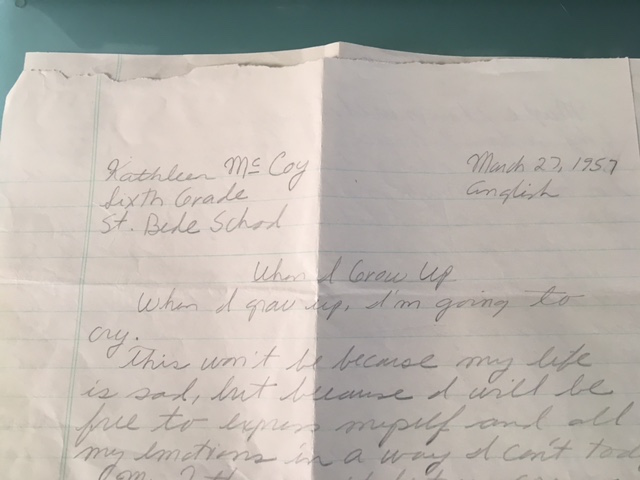 Kathleen McCoy
March 27, 1957
Sixth Grade
English
St. Bede School
When I Grow Up
When I grow up, I'm going to
cry.
This won't be because my life
is sad, but because I will be
free to express myself and all
my emotions in a way I can't